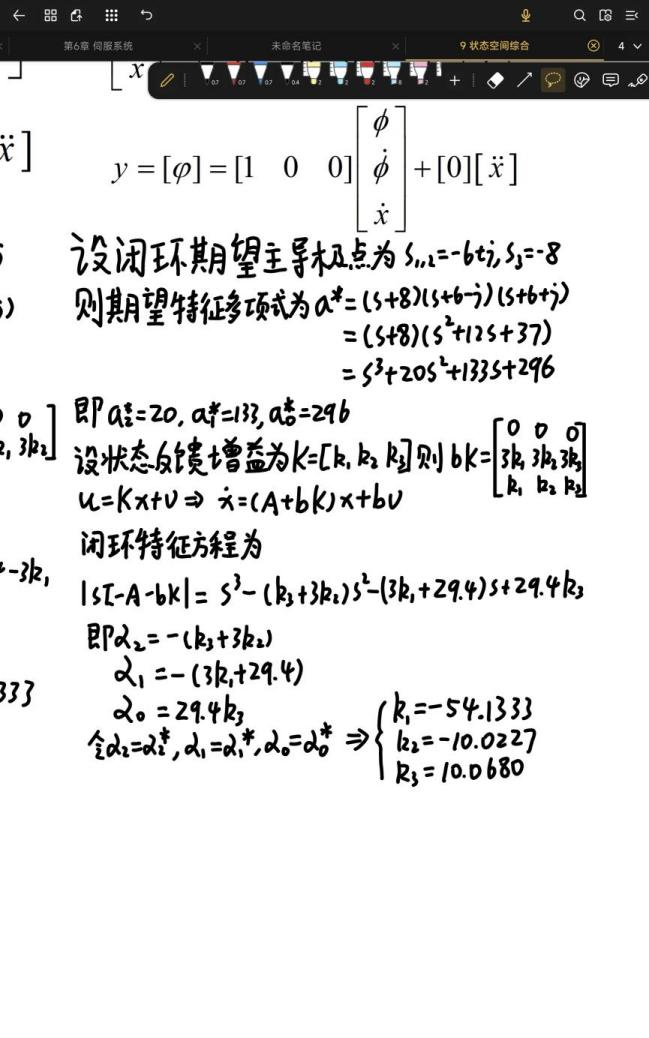 第6章 伺服系统
未命名笔记
9 状态空间综合
4
[x
ẍ]
y = [φ] = [1 0 0] [ϕ ϕ̇ ẋ] + [0][ẍ]
设闭环期望主导极点为 S₁,₂=-6±j, S₃=-8
则期望特征多项式为 a*=(s+8)(s+6-j)(s+6+j)
=(s+8)(s²+12s+37)
=s³+20s²+133s+296
即 a₂*=20, a₁*=133, a₀*=296
设状态反馈增益为 K=[k₁ k₂ k₃] 则 bK=[0 0 0; 3k₁ 3k₂ 3k₃; k₁ k₂ k₃]
u=Kx+v ⇒ ẋ=(A+bK)x+bv
闭环特征方程为
|sI-A-bK|= s³-(k₃+3k₂)s²-(3k₁+29.4)s+29.4k₃
即 α₂=-(k₃+3k₂)
α₁=-(3k₁+29.4)
α₀=29.4k₃
令 α₂=α₂*, α₁=α₁*, α₀=α₀* ⇒ { k₁=-54.1333
k₂=-10.0227
k₃=10.0680
0 0
3k₂]
-3k₁
333